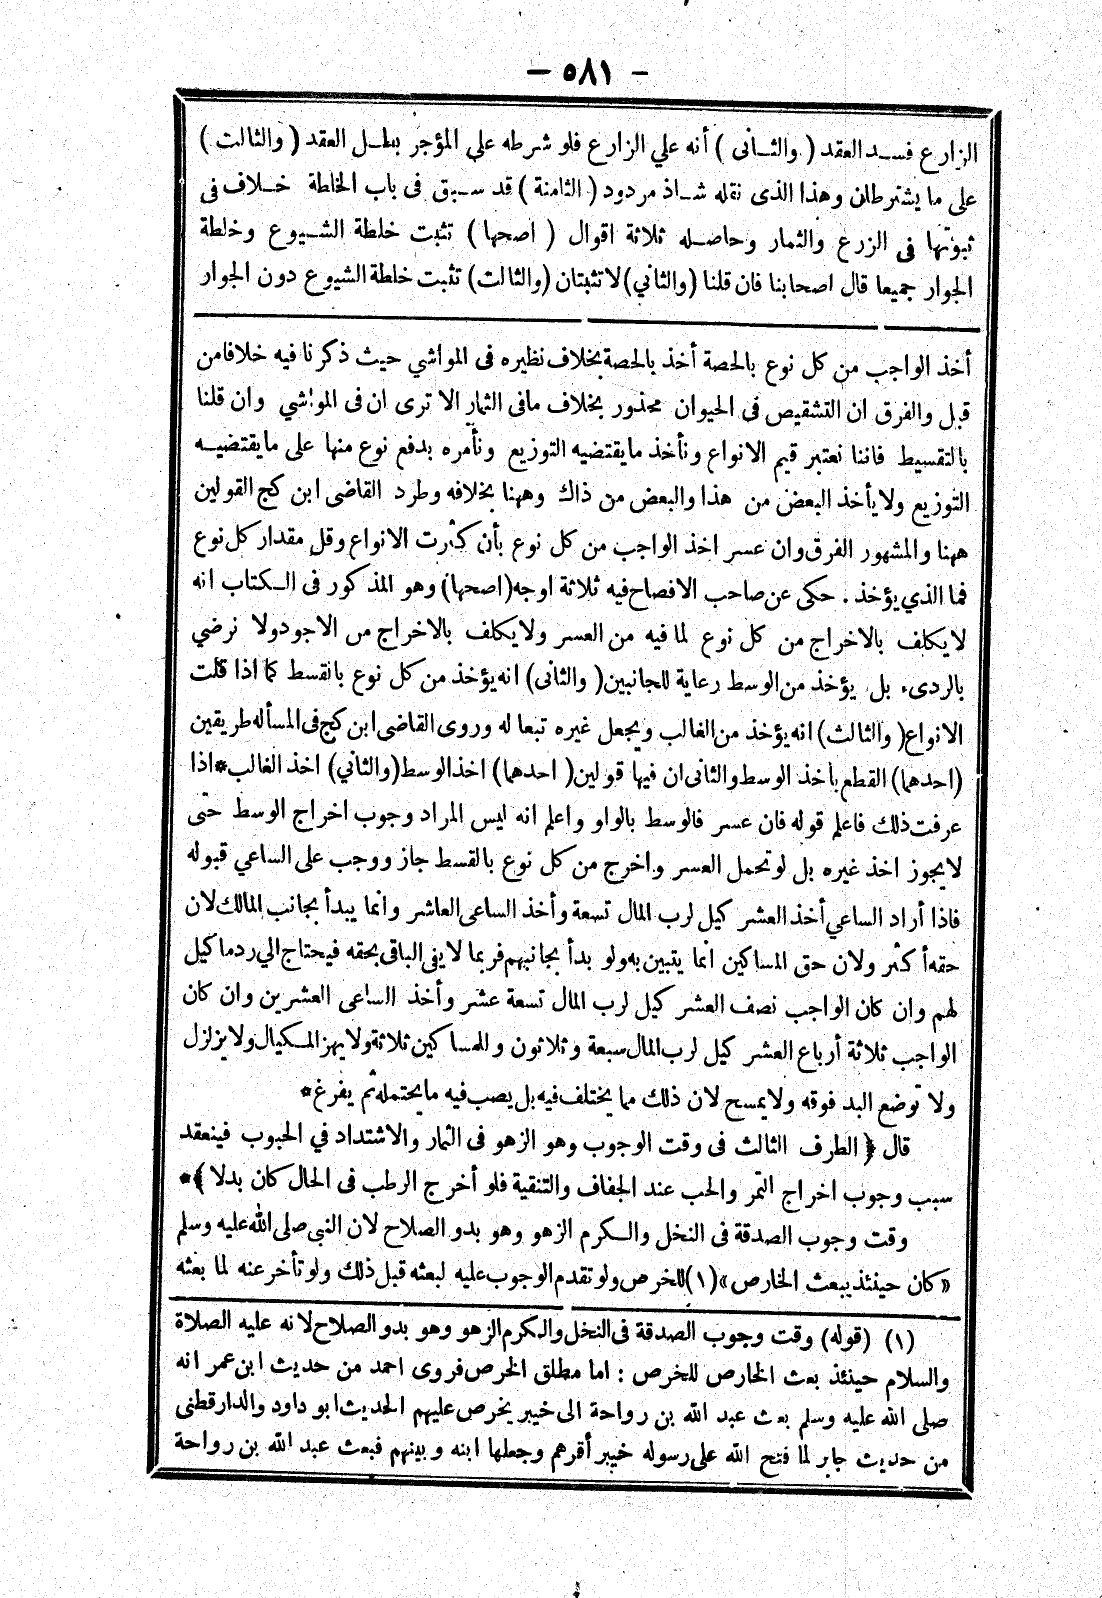 — ٥٨١ —
الزارع فسد العقد (والثانى) أنه علي الزارع فلو شرطه علي المؤجر بطل العقد (والثالث)
على ما يشترطان وهذا الذى نقله شاذ مردود (الثامنة) قد سبق فى باب الخلطة خلاف فى
ثبوتها فى الزرع والثمار وحاصله ثلاثة اقوال (اصحها) تثبت خلطة الشيوع وخلطة
الجوار جميعا قال اصحابنا فان قلنا (والثاني) لا تثبتان (والثالث) تثبت خلطة الشيوع دون الجوار
أخذ الواجب من كل نوع بالحصة أخذ بالحصة بخلاف نظيره فى المواشي حيث ذكرنا فيه خلافا من
قبل والفرق ان التشقيص فى الحيوان محذور بخلاف مافى الثمار الا ترى ان فى المواشي وان قلنا
بالتقسيط فاننا نعتبر قيم الانواع ونأخذ مايقتضيه التوزيع ونأمره بدفع نوع منها على مايقتضيه
التوزيع ولا يأخذ البعض من هذا والبعض من ذاك وههنا بخلافه وطرد القاضى ابن كج القولين
ههنا والمشهور الفرق وان عسر اخذ الواجب من كل نوع بأن كثرت الانواع وقل مقدار كل نوع
فما الذي يؤخذ . حكى عن صاحب الافصاح فيه ثلاثة اوجه (اصحها) وهو المذكور فى الكتاب انه
لا يكلف بالاخراج من كل نوع لما فيه من العسر ولا يكلف بالاخراج من الاجود ولا نرضي
بالردىء بل يؤخذ من الوسط رعاية للجانبين (والثانى) انه يؤخذ من كل نوع بالقسط كما اذا قلت
الانواع (والثالث) انه يؤخذ من الغالب ويجعل غيره تبعا له وروى القاضى ابن كج فى المسأله طريقين
(احدهما) القطع بأخذ الوسط والثانى ان فيها قولين (احدهما) اخذ الوسط (والثاني) اخذ الغالب * اذا
عرفت ذلك فاعلم قوله فان عسر فالوسط بالواو واعلم انه ليس المراد وجوب اخراج الوسط حتى
لا يجوز اخذ غيره بل لو تحمل العسر واخرج من كل نوع بالقسط جاز ووجب على الساعي قبوله
فاذا أراد الساعي أخذ العشر كيل لرب المال تسعة وأخذ الساعى العاشر وانما يبدأ بجانب المالك لان
حقه أكثر ولان حق المساكين انما يتبين به ولو بدأ بجانبهم فربما لا يفى الباقى بحقه فيحتاج الي رد ما كيل
لهم وان كان الواجب نصف العشر كيل لرب المال تسعة عشر وأخذ الساعى العشرين وان كان
الواجب ثلاثة أرباع العشر كيل لرب المال سبعة وثلاثون وللمساكين ثلاثة ولا يهز المكيال ولا يزلزل
ولا توضع اليد فوقه ولا يمسح لان ذلك مما يختلف فيه بل يصب فيه ما يحتمله ثم يفرغ *
قال ﴿ الطرف الثالث فى وقت الوجوب وهو الزهو فى الثمار والاشتداد في الحبوب فينعقد
سبب وجوب اخراج التمر والحب عند الجفاف والتنقية فلو أخرج الرطب فى الحال كان بدلا ﴾ *
وقت وجوب الصدقة فى النخل والكرم الزهو وهو بدو الصلاح لان النبى صلى الله عليه وسلم
«كان حينئذ يبعث الخارص» (١) للخرص ولو تقدم الوجوب عليه لبعثه قبل ذلك ولو تأخر عنه لما بعثه
(١) (قوله) وقت وجوب الصدقة فى النخل والكرم الزهو وهو بدو الصلاح لانه عليه الصلاة
والسلام حينئذ بعث الخارص للخرص : اما مطلق الخرص فروى احمد من حديث ابن عمر انه
صلى الله عليه وسلم بعث عبد الله بن رواحة الى خيبر يخرص عليهم الحديث ابو داود والدارقطنى
من حديث جابر لما فتح الله على رسوله خيبر أقرهم وجعلها ابنه وبينهم فبعث عبد الله بن رواحة